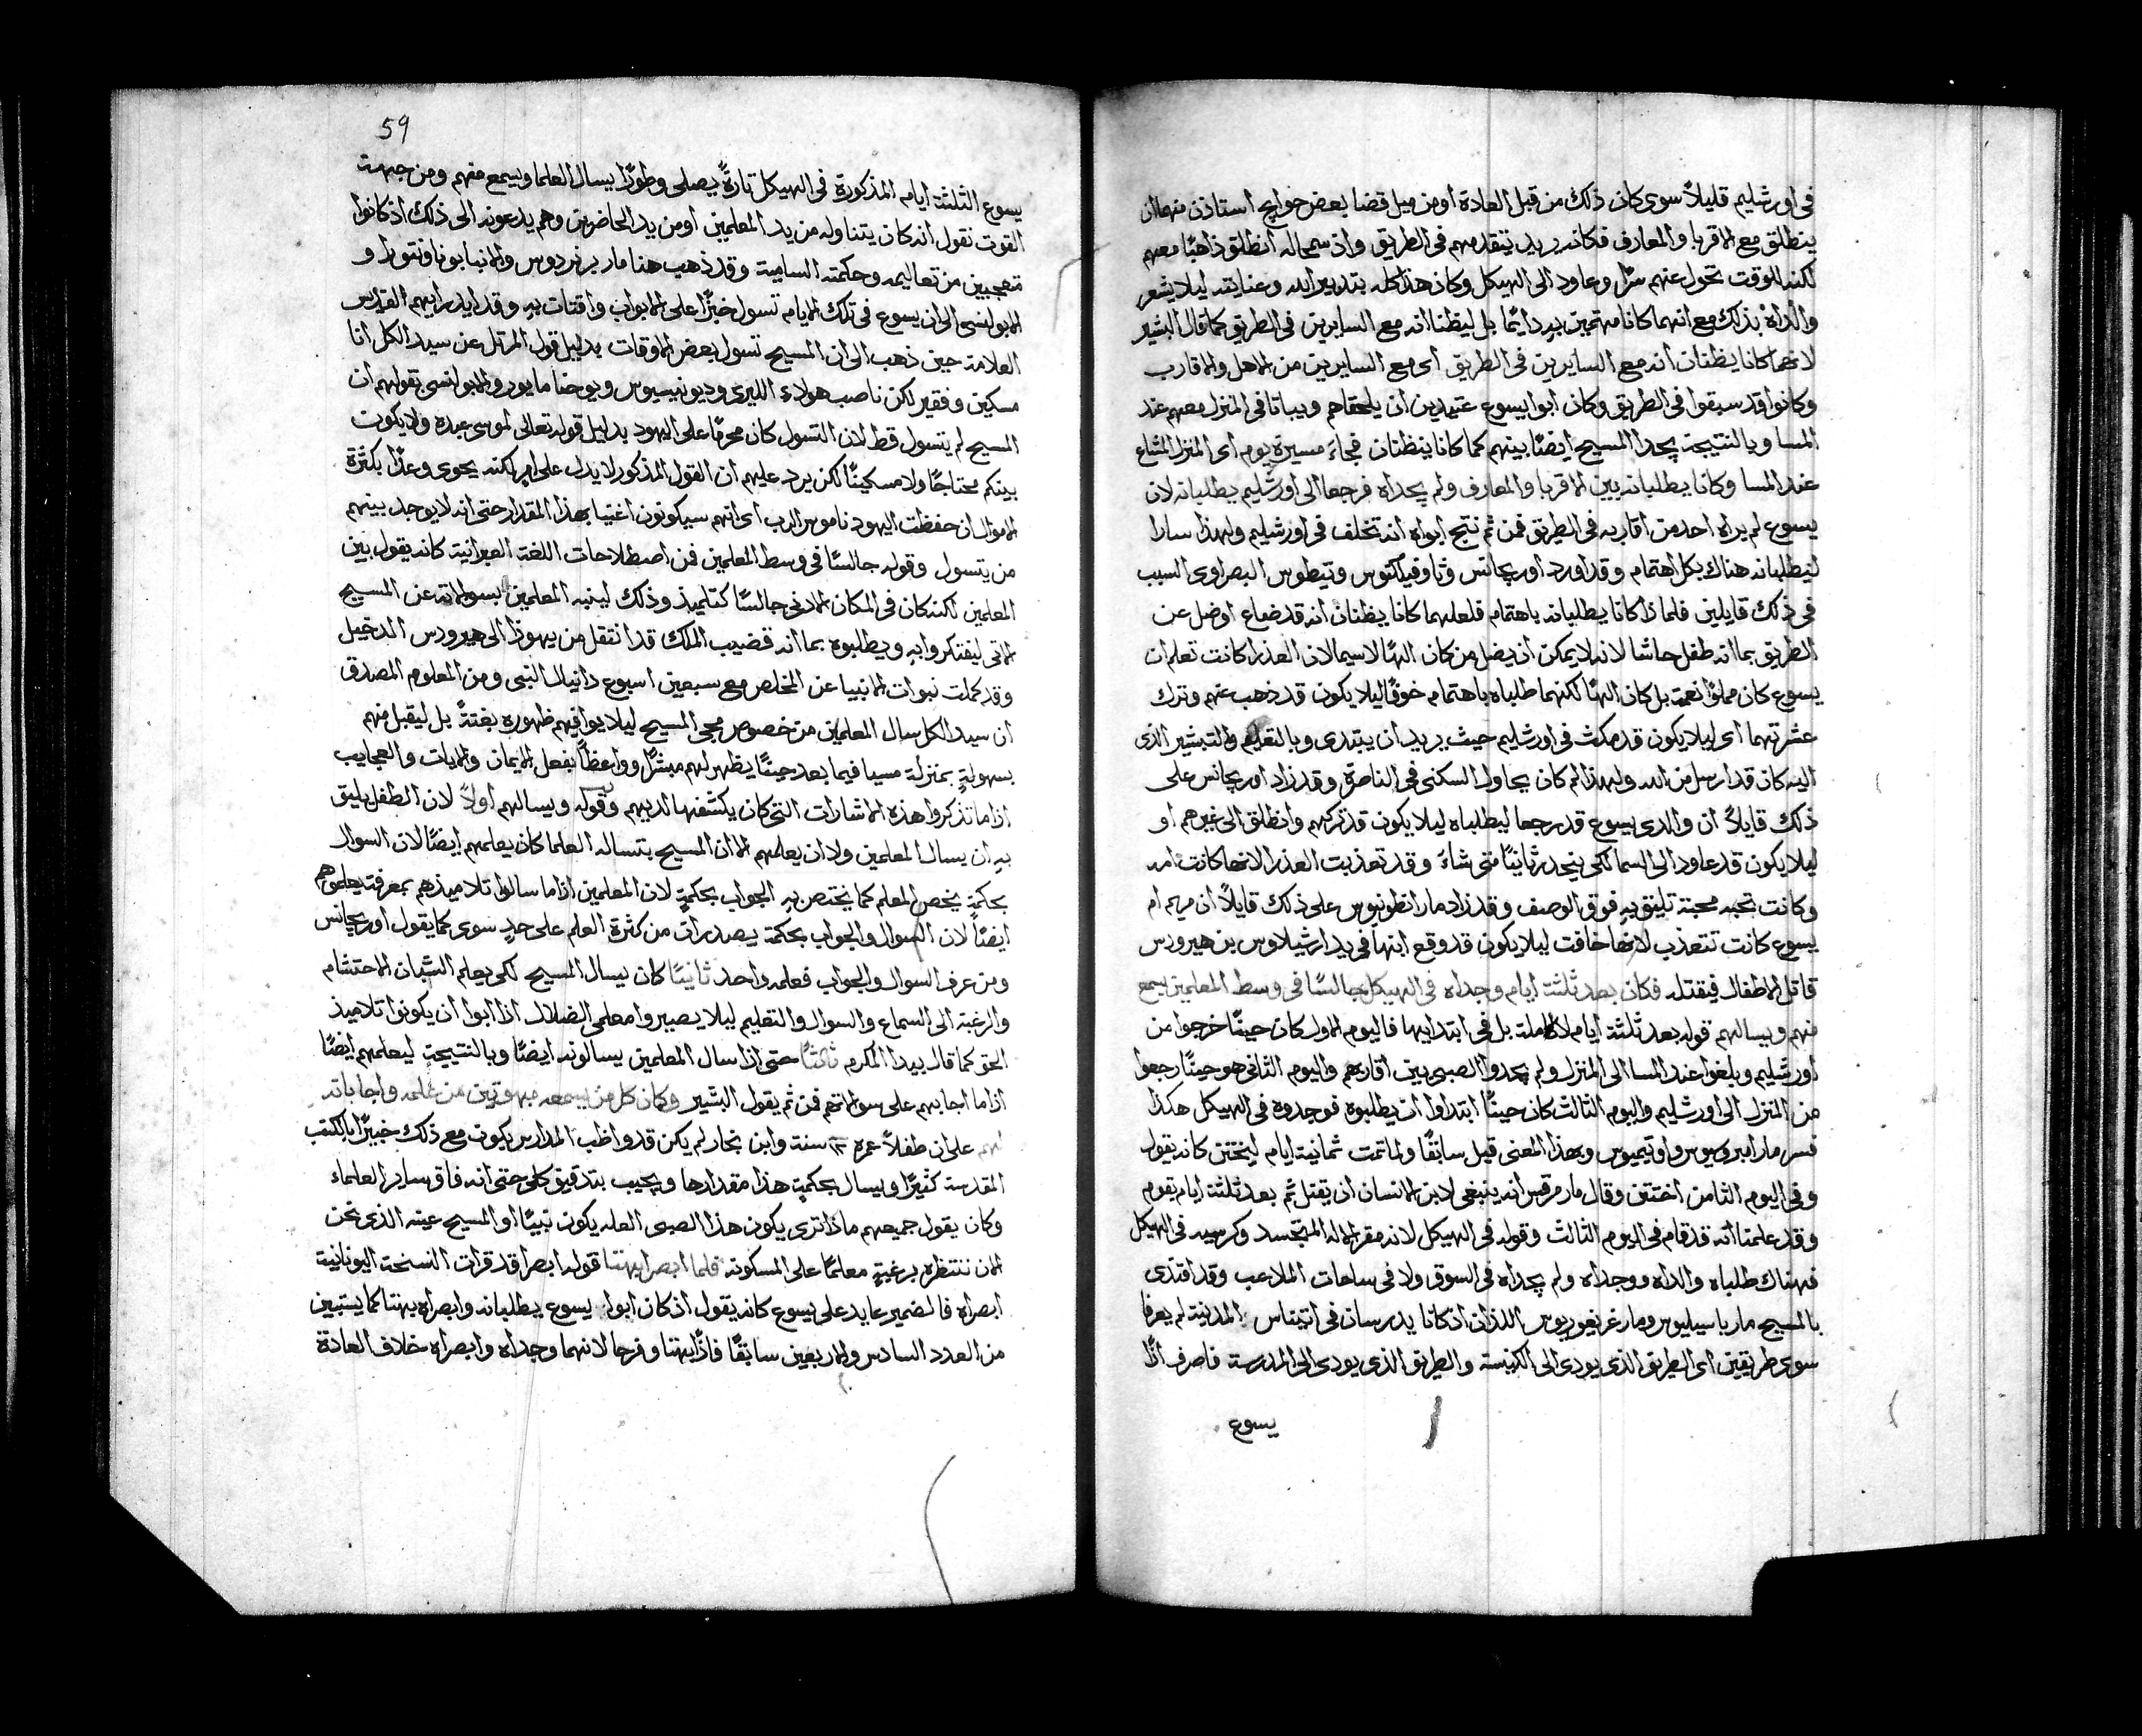 في اورشليم قليلاً سوى كان ذلك من قبل العادة او من ميل قضا بعض حوايج استاذن منهما ان
ينطلق مع الاقربا والمعارف فكانه يريد يتقدمهم في الطريق واذ سمحا له انطلق ذاهبًا معهم
لكنه للوقت تحول عنهم سرًا وعاود الى الهيكل وكان هذا كله بتدبير الله وعنايته ليلا يشعر
والداه بذلك مع انهما كانا مهتمين به دايمًا بل ليظنا انه مع السايرين في الطريق كما قال البشير
لانهما كانا يظنان انه مع السايرين في الطريق اى مع السايرين من الاهل والاقارب
وكانوا قد سبقوا في الطريق وكان ابوا يسوع عتيدين ان يلحقاهم ويباتا في المنزل معهم عند
المسا وبالنتيجة يجدا المسيح ايضًا بينهم كما كانا ينظنان فجاء مسيرة يوم اى المنزل المشاع
عند المسا وكانا يطلبانه بين الاقربا والمعارف ولم يجداه فرجعا الى اورشليم يطلبانه لان
يسوع لم يراه احد من اقاربه في الطريق فمن ثم نتج ابواه انه تخلف في اورشليم ولهذا سارا
ليطلبانه هناك بكل اهتمام وقد اورد اوريجانس وثاوفيلكتوس وتيطوس البصراوى السبب
في ذلك قايلين فلماذا كانا يطلبانه باهتمام فلعلهما كانا يظنان انه قد ضاع او ضل عن
الطريق بما انه طفل حاشا لانه لا يمكن ان يضل من كان الهًا لاسيما لان العذرا كانت تعلم ان
يسوع كان مملوًا نعمة بل كان الهًا لكنهما طلباه باهتمام خوفًا ليلا يكون قد ذهب عنهم وترك
عشرتهما اى ليلا يكون قد مكث في اورشليم حيث يريد ان يبتدى وبالتعليم والتبشير الذى
اليه كان قد ارسل من الله ولهذا لم كان يحاول السكنى في الناصرة وقد زاد اوريجانس على
ذلك قايلاً ان والدى يسوع قد رجعا ليطلباه ليلا يكون قد تركهم وانطلق الى غيرهم او
ليلا يكون قد عاود الى السما لكي ينحدر ثانيًا متى شاء وقد تعذبت العذرا لانها كانت امه
وكانت تحبه محبة تليق به فوق الوصف وقد زاد مار انطونيوس على ذلك قايلاً ان مريم ام
يسوع كانت تتعذب لانها خافت ليلا يكون قد وقع ابنها في يد ارشيلاوس بن هيرودس
قاتل الاطفال فيقتله فكان بعد ثلثة ايام وجداه في الهيكل جالسًا في وسط المعلمين يسمع
منهم ويسالهم قوله بعد ثلثة ايام لا كاملة بل في ابتدايها فاليوم الاول كان حينًا خرجوا من
اورشليم وبلغوا عند المسا الى المنزل ولم يجدوا الصبى بين اقاربهم واليوم الثاني هو حينًا رجعوا
من المنزل الى اورشليم واليوم الثالث كان حينًا ابتداوا ان يطلبوه فوجدوه في الهيكل هكذا
فسر مار امبروسيوس واوتيميوس وبهذا المعنى قيل سابقًا ولما تمت ثمانية ايام ليختتن كانه يقول
وفي اليوم الثامن اختتن وقال مار مرقس انه ينبغى لابن الانسان ان يقتل ثم بعد ثلثة ايام يقوم
وقد علمتا انه قد قام في اليوم الثالث وقوله في الهيكل لانه مقر الاله المتجسد وكرسيه في الهيكل
فهناك طلباه والداه ووجداه ولم يجداه في السوق ولا في ساحات الملاعب وقد اقتدى
بالمسيح مار باسيليوس ومار غريغوريوس اللذان اذ كانا يدرسان في اتيناس المدينة لم يعرفا
سوى طريقين اى الطريق الذى يودى الى الكنيسة والطريق الذى يودى الى المدرسة فاصرف اذًا
يسوع
59
يسوع الثلثة ايام المذكورة في الهيكل تارةً يصلى وطورًا يسال العلما ويسمع منهم ومن جهة
القوت نقول انه كان يتناوله من يد المعلمين او من يد الحاضرين وهم يدعونه الى ذلك اذ كانوا
متعجبين من تعاليمه وحكمته السامية وقد ذهب هنا مار برنردوس والانبا بوناونتورا و
الابولنسى الى ان يسوع في تلك الايام تسول خبزًا على الابواب واقتات به وقد ايد رايهم القديس
العلامة حين ذهب الى ان المسيح تسول بعض الاوقات بدليل قول المرتل عن سيد الكل انا
مسكين وفقير لكن ناصب هولاء الليرى وديونيسيوس ويوحنا مايور والابولنسى بقولهم ان
المسيح لم يتسول قط لان التسول كان محرمًا على اليهود بدليل قوله تعالى لموسى عبده ولا يكون
بينكم محتاجًا ولا مسكينًا لكن يرد عليهم ان القول المذكور لا يدل على امر لكنه يحوى وعدًا بكثرة
الاموال ان حفظت اليهود ناموس الرب اى انهم سيكونون اغنيا بهذا المقدار حتى انه لا يوجد بينهم
من يتسول وقوله جالسًا في وسط المعلمين فمن اصطلاحات اللغة العبرانية كانه يقول بين
المعلمين لكنه كان في المكان الادنى جالسًا كتلميذ وذلك لينبه المعلمين بسوالاته عن المسيح
الاتى ليفتكروا به ويطلبوه بما انه قضيب الملك قد انتقل من يهوذا الى هيرودس الدخيل
وقد كملت نبوات الانبيا عن المخلص مع سبعين اسبوع دانيال النبى ومن المعلوم المصدق
ان سيد الكل سال المعلمين من خصوص مجى المسيح ليلا يوافيهم ظهوره بغتةً بل ليقبل منهم
بسهولةٍ بمنزلة مسيا فيما بعد حينًا يظهر لهم مبشرًا وواعظًا بفعل الايمان والايات والعجايب
اذا ما تذكروا هذه الاشارات التي كان يكشفها لديهم وقوله ويسالهم اولاً لان الطفل يليق
به ان يسال المعلمين ولا ان يعلمهم الا ان المسيح بتساله العلما كان يعلمهم ايضًا لان السوال
بحكمةٍ يخص المعلم كما يختص به الجواب بحكمةٍ لان المعلمين اذا ما سالوا تلاميذهم بمعرفة يعلموهم
ايضًا لان السوال والجواب بحكمة يصدران من كثرة العلم على حدٍ سوى كما يقول اوريجانس
ومن عرف السوال والجواب فعلمه واحد ثانيًا كان يسال المسيح لكي يعلم الشبان الاحتشام
والرغبة الى السماع والسوال والتعليم ليلا يصيروا معلمي الضلال اذا ابوا ان يكونوا تلاميذ
الحق كما قال بيدا المكرم ثالثًا حتى اذا سال المعلمين يسالونه ايضًا وبالنتيجة ليعلمهم ايضًا
اذا ما اجابهم على سوالاتهم فمن ثم يقول البشير وكان كل من يسمعه مبهوتين من علمه واجاباته
لهم على ان طفلاً عمره ١٢ سنة وابن نجار لم يكن قد واظب المدارس يكون مع ذلك خبيرًا بالكتب
المقدسة كثيرًا ويسال بحكمةٍ هذا مقدارها ويجيب بتدقيق كلى حتى انه فاق ساير العلماء
وكان يقول جميعهم ماذا ترى يكون هذا الصبى العله يكون نبيًا او المسيح عينه الذى نحن
الان ننتظره برغبةٍ معلمًا على المسكونة فلما ابصراه بهتا قوله ابصرا قد قرات النسخة اليونانية
ابصراه فالضمير عايد على يسوع كانه يقول اذ كان ابوا يسوع يطلبانه وابصراه بهتا كما يستبين
من العدد السادس والاربعين سابقًا فاذًا بهتا وفرحا لانهما وجداه وابصراه خلاف العادة